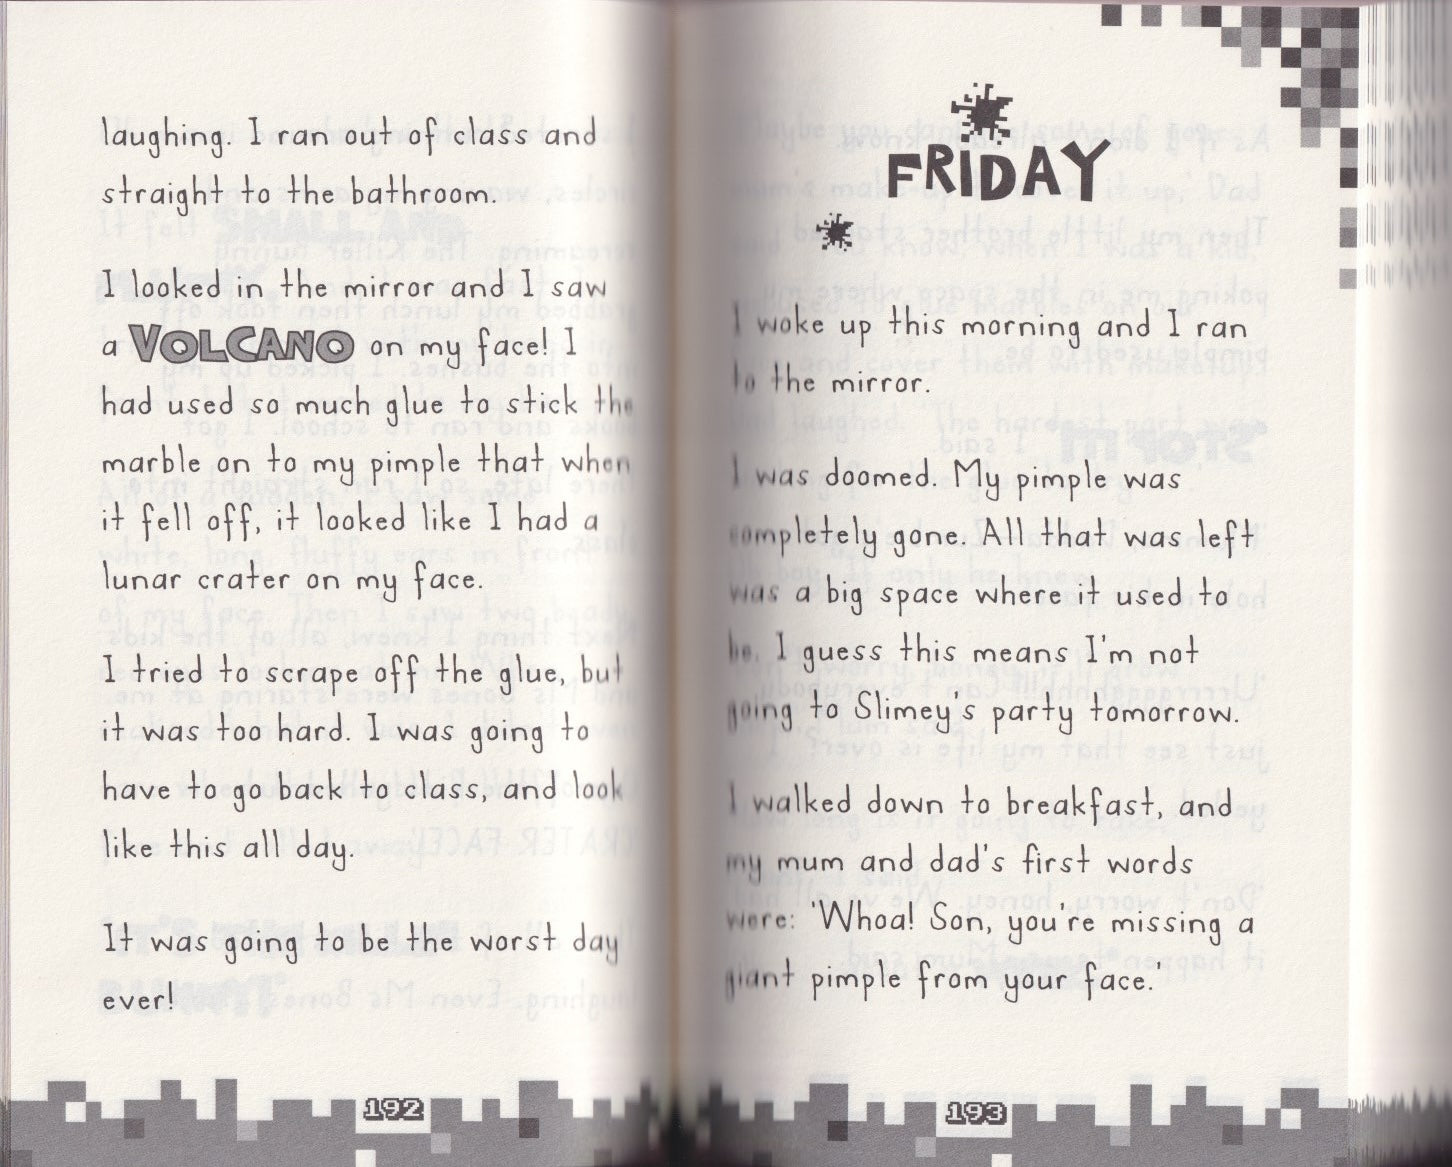 laughing. I ran out of class and
straight to the bathroom.
I looked in the mirror and I saw
a VOLCANO on my face! I
had used so much glue to stick the
marble on to my pimple that when
it fell off, it looked like I had a
lunar crater on my face.
I tried to scrape off the glue, but
it was too hard. I was going to
have to go back to class, and look
like this all day.
It was going to be the worst day
ever!
192
FRIDAY
I woke up this morning and I ran
to the mirror.
I was doomed. My pimple was
completely gone. All that was left
was a big space where it used to
be. I guess this means I'm not
going to Slimey's party tomorrow.
I walked down to breakfast, and
my mum and dad's first words
were: 'Whoa! Son, you're missing a
giant pimple from your face.'
193